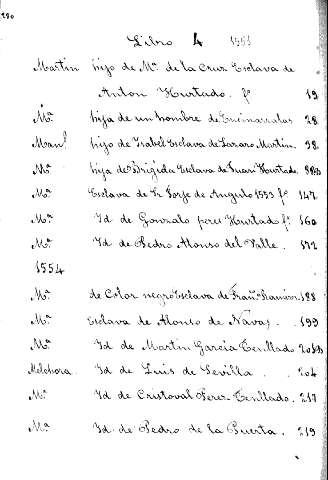 290
Libro 4 1553
Martin hijo de Mª de la Cruz Esclava de
Anton Hurtado. fº 19
Mª hija de un hombre de 28
Manl hijo de Isabel Esclava de Lazaro Martin. 38
Mª hija de Brigida Esclava de Juan Hurtado
Mª Esclava de Jorge de Angulo 1553 fº 147
Mª Id de Gonzalo perez Hurtado fº 160
Mª Id de Pedro Alonso del Valle. 172
1554
Mª de Color negro Esclava de Franº Ramirez 188
Mª Esclava de Alonso de Navas. 199
Mª Id de Martin Garcia Tenllado
Melchora Id de Luis de Sevilla. 204
Mª Id de Cristoval Perez Tenllado. 217
Mª Id de Pedro de la Puerta. 219